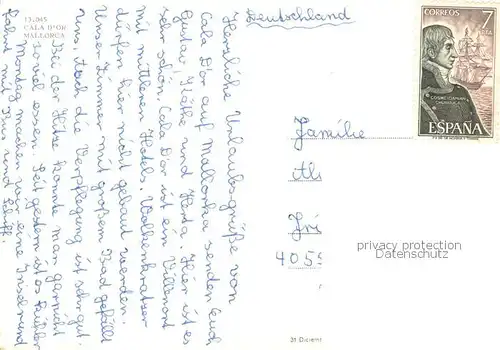 13.045
CALA D'OR
MALLORCA
Deutschland
CORREOS 7
PTA
COSME DAMIAN
CHURRUCA
ESPAÑA
Herzliche Urlaubsgrüße von
Cala D'or auf Mallorka senden Euch
Gustav, Käthe und Herta. Hier ist es
sehr schön. Cala D'or ist ein Villenort
mit mittleren Hotels. Wolkenkratzer
dürfen hier nicht gebaut werden.
Unser Zimmer mit großem Bad gefällt
uns. Auch die Verpflegung ist sehr gut.
Bei der Hitze konnte man garnicht
soviel essen. Seit gestern ist es kühler
Montag machen wir eine Inselrund
fahrt mit Bus und Schiff.
Familie
405
privacy protection
Datenschutz
31 Diciem